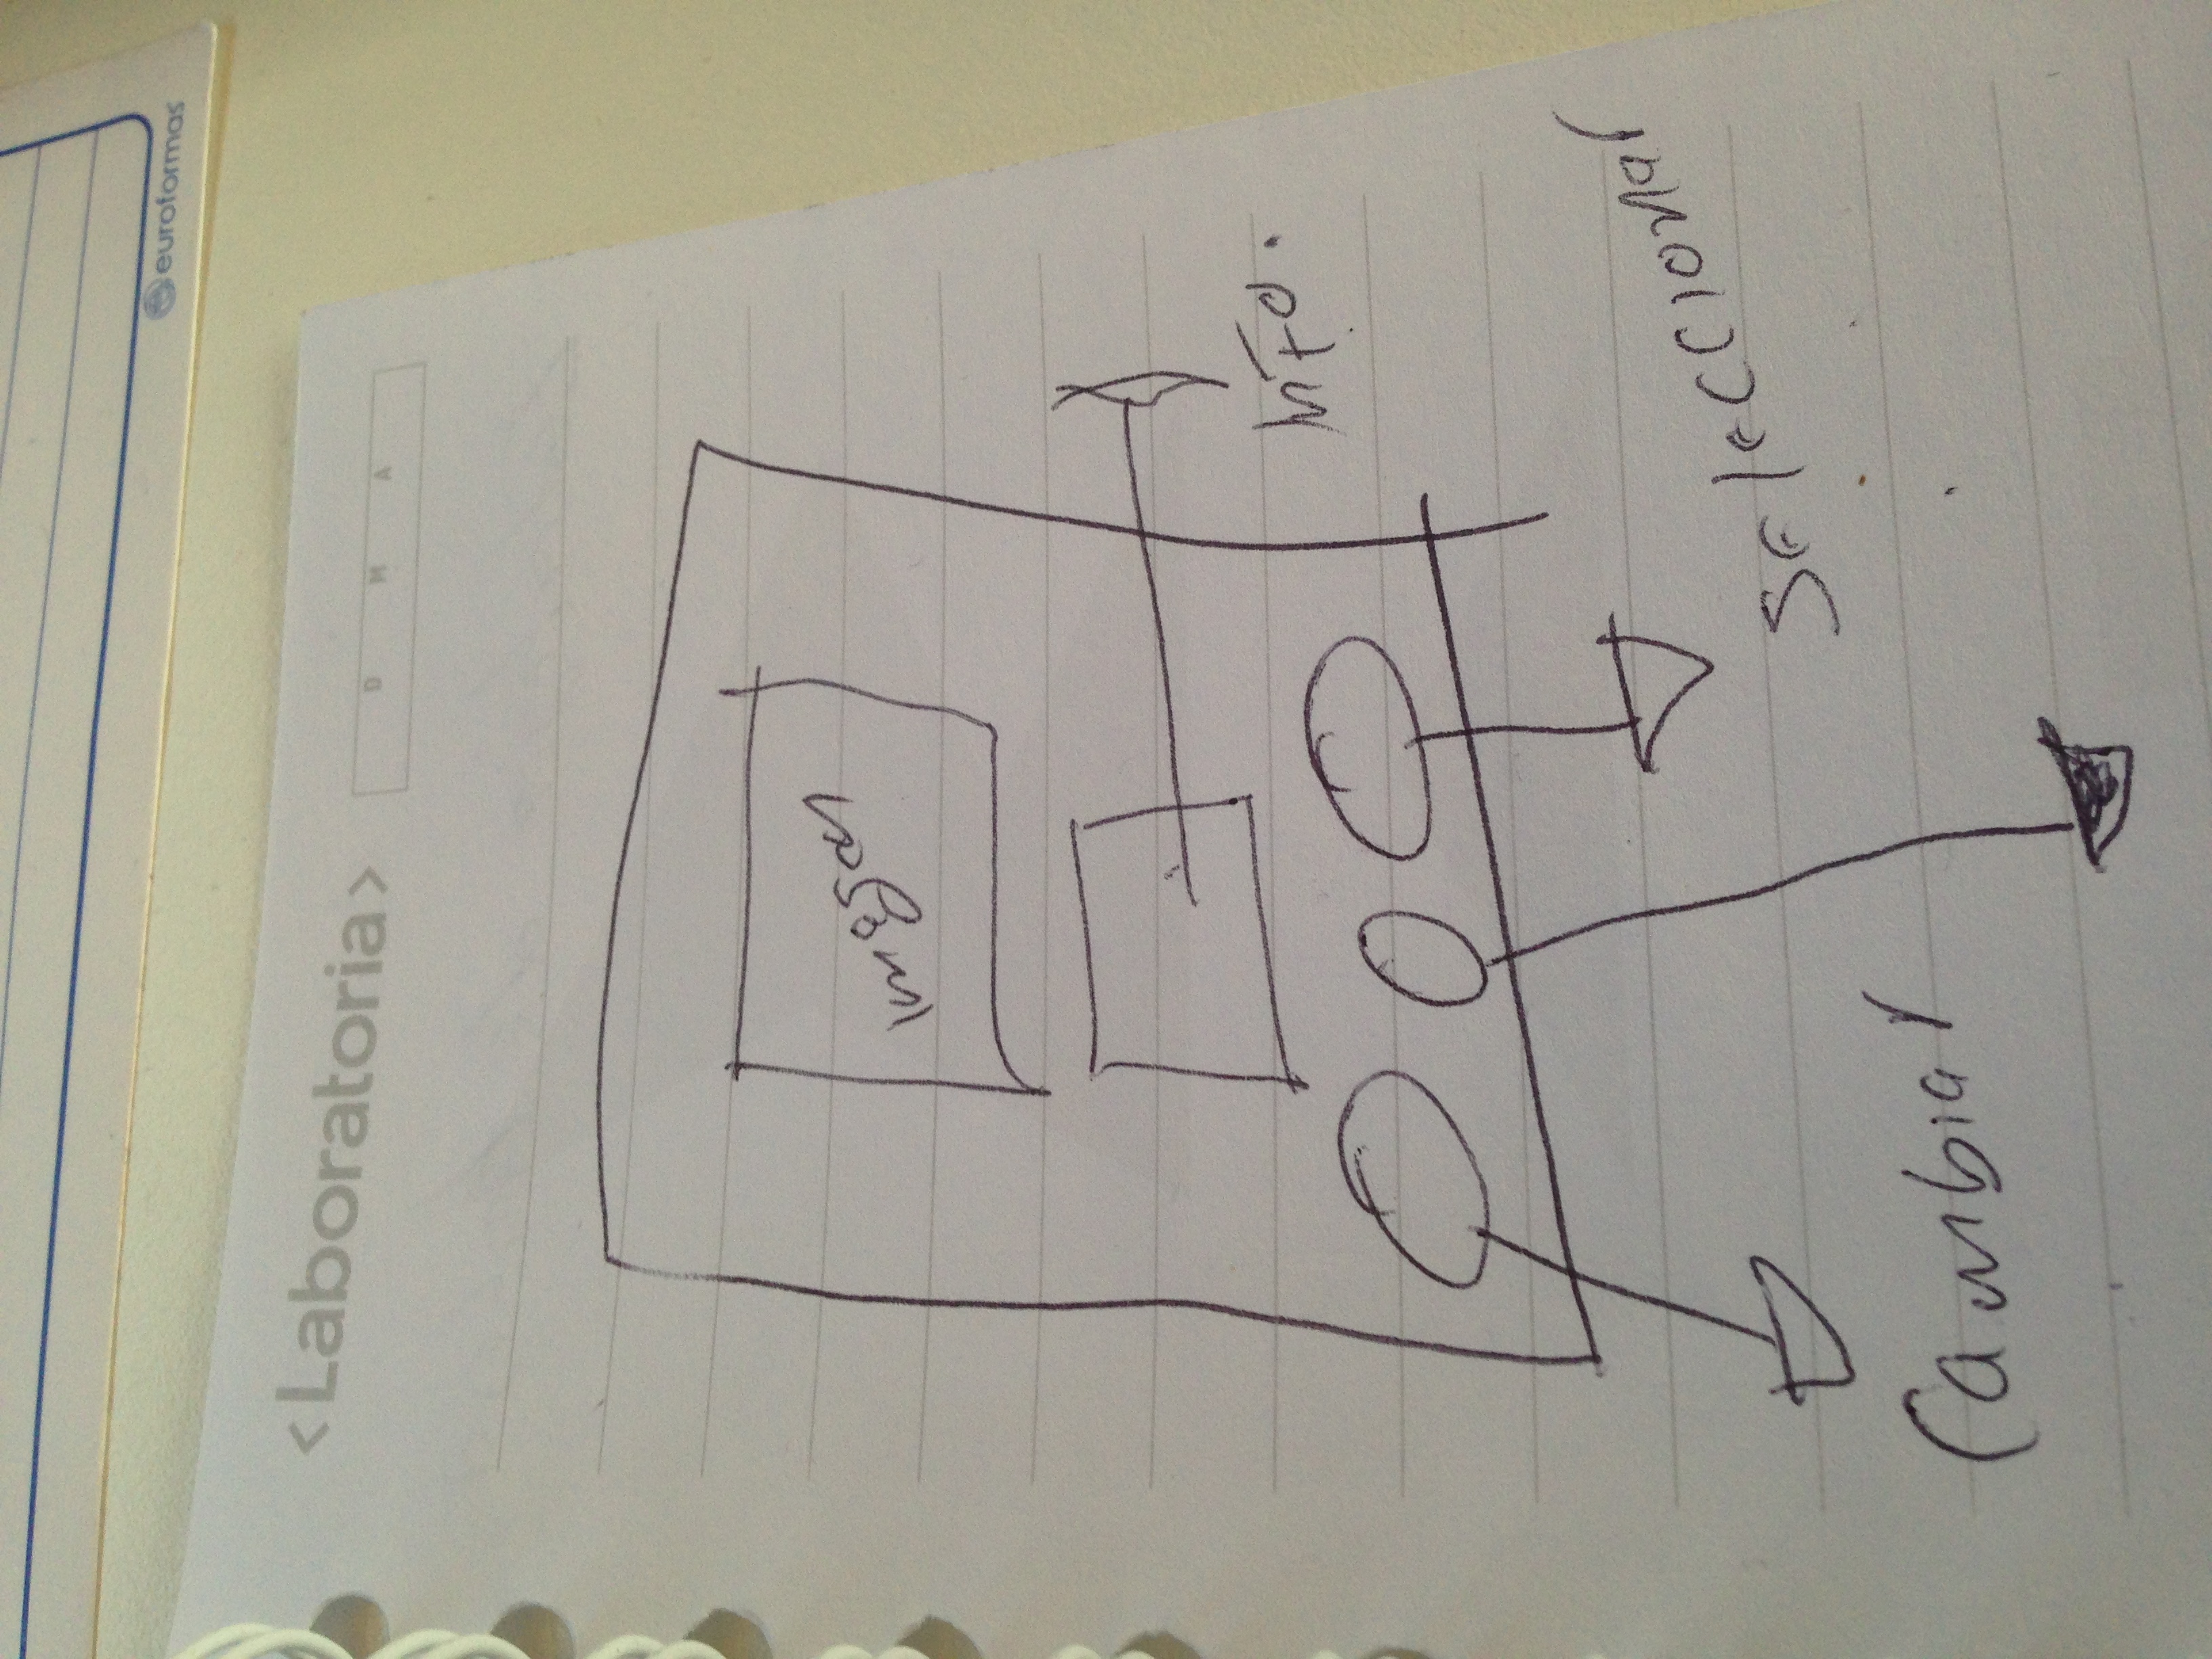 euroformas
<Laboratoria>
D M A
Imagen
INFO.
Seleccionar
Cambiar